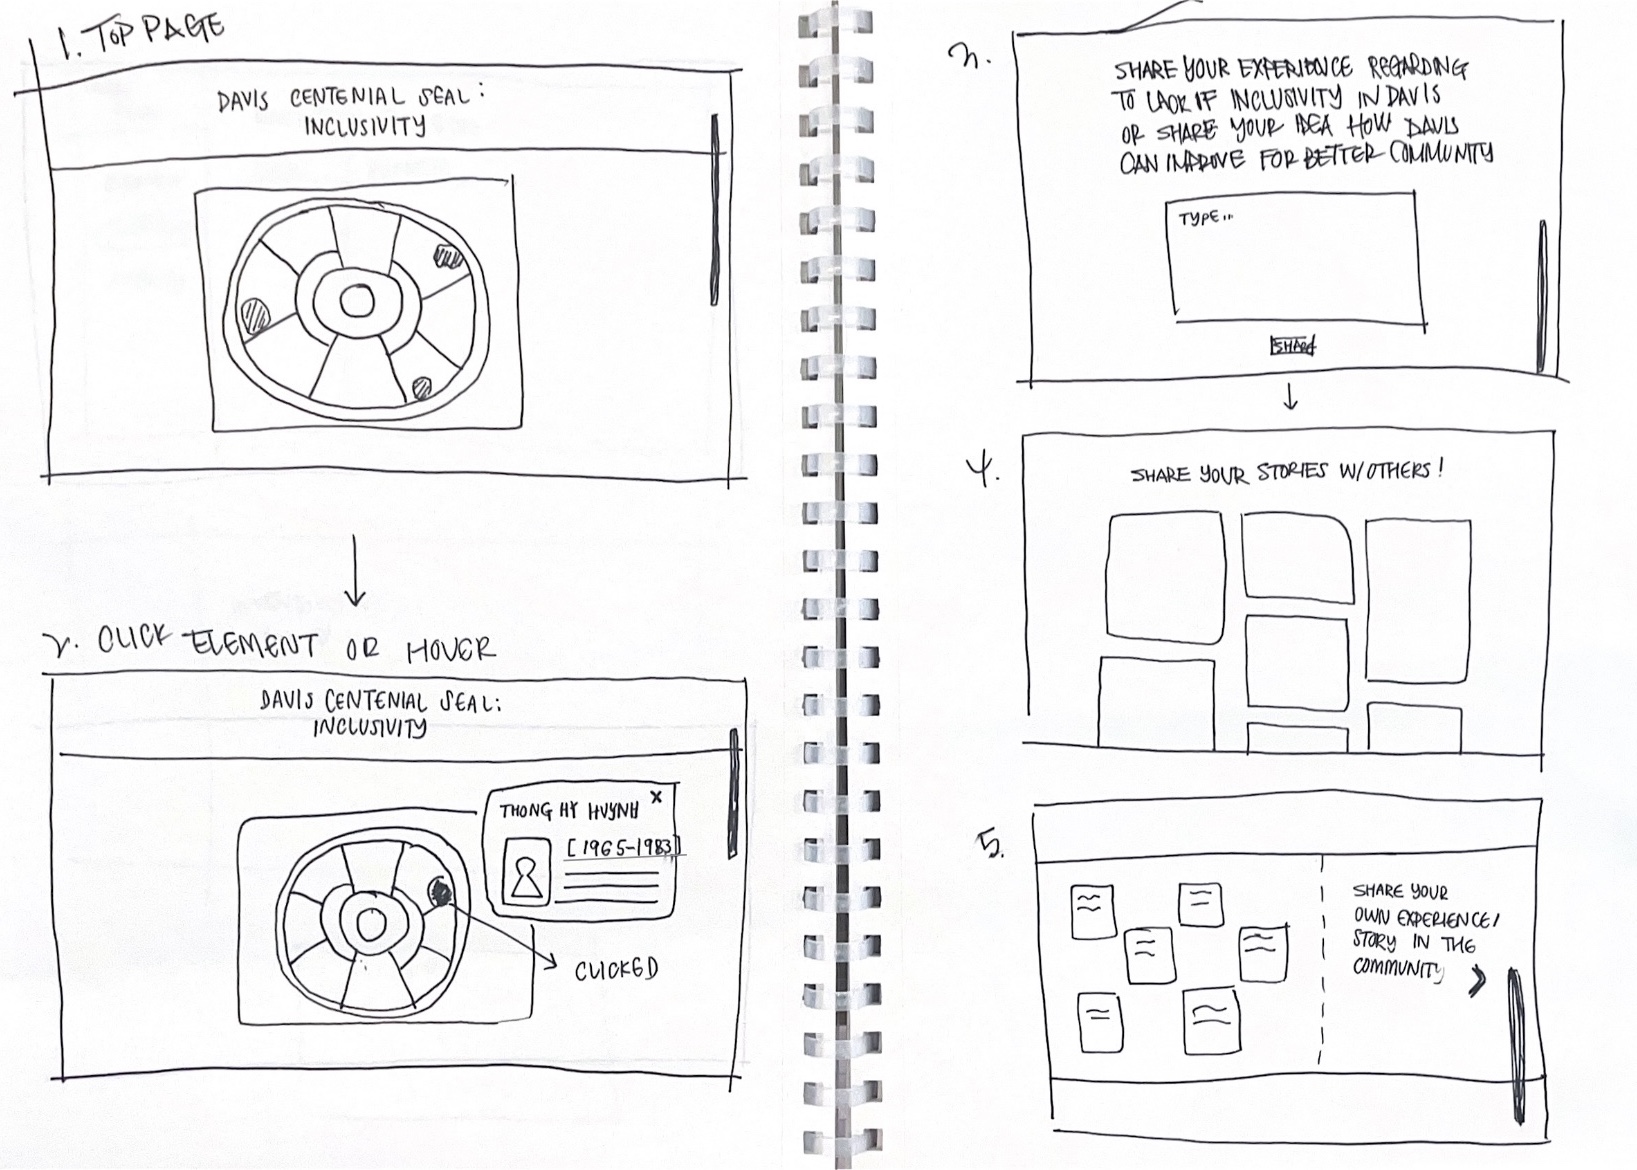 1. TOP PAGE
DAVIS CENTENIAL SEAL:
INCLUSIVITY
2. CLICK ELEMENT OR HOVER
DAVIS CENTENIAL SEAL:
INCLUSIVITY
THONG HY HUYNH X
[1965-1983]
CLICKED
3.
SHARE YOUR EXPERIENCE REGARDING
TO LACK IF INCLUSIVITY IN DAVIS
OR SHARE YOUR IDEA HOW DAVIS
CAN IMPROVE FOR BETTER COMMUNITY
TYPE...
SHARE
4.
SHARE YOUR STORIES W/OTHERS!
5.
SHARE YOUR
OWN EXPERIENCE/
STORY IN THE
COMMUNITY >